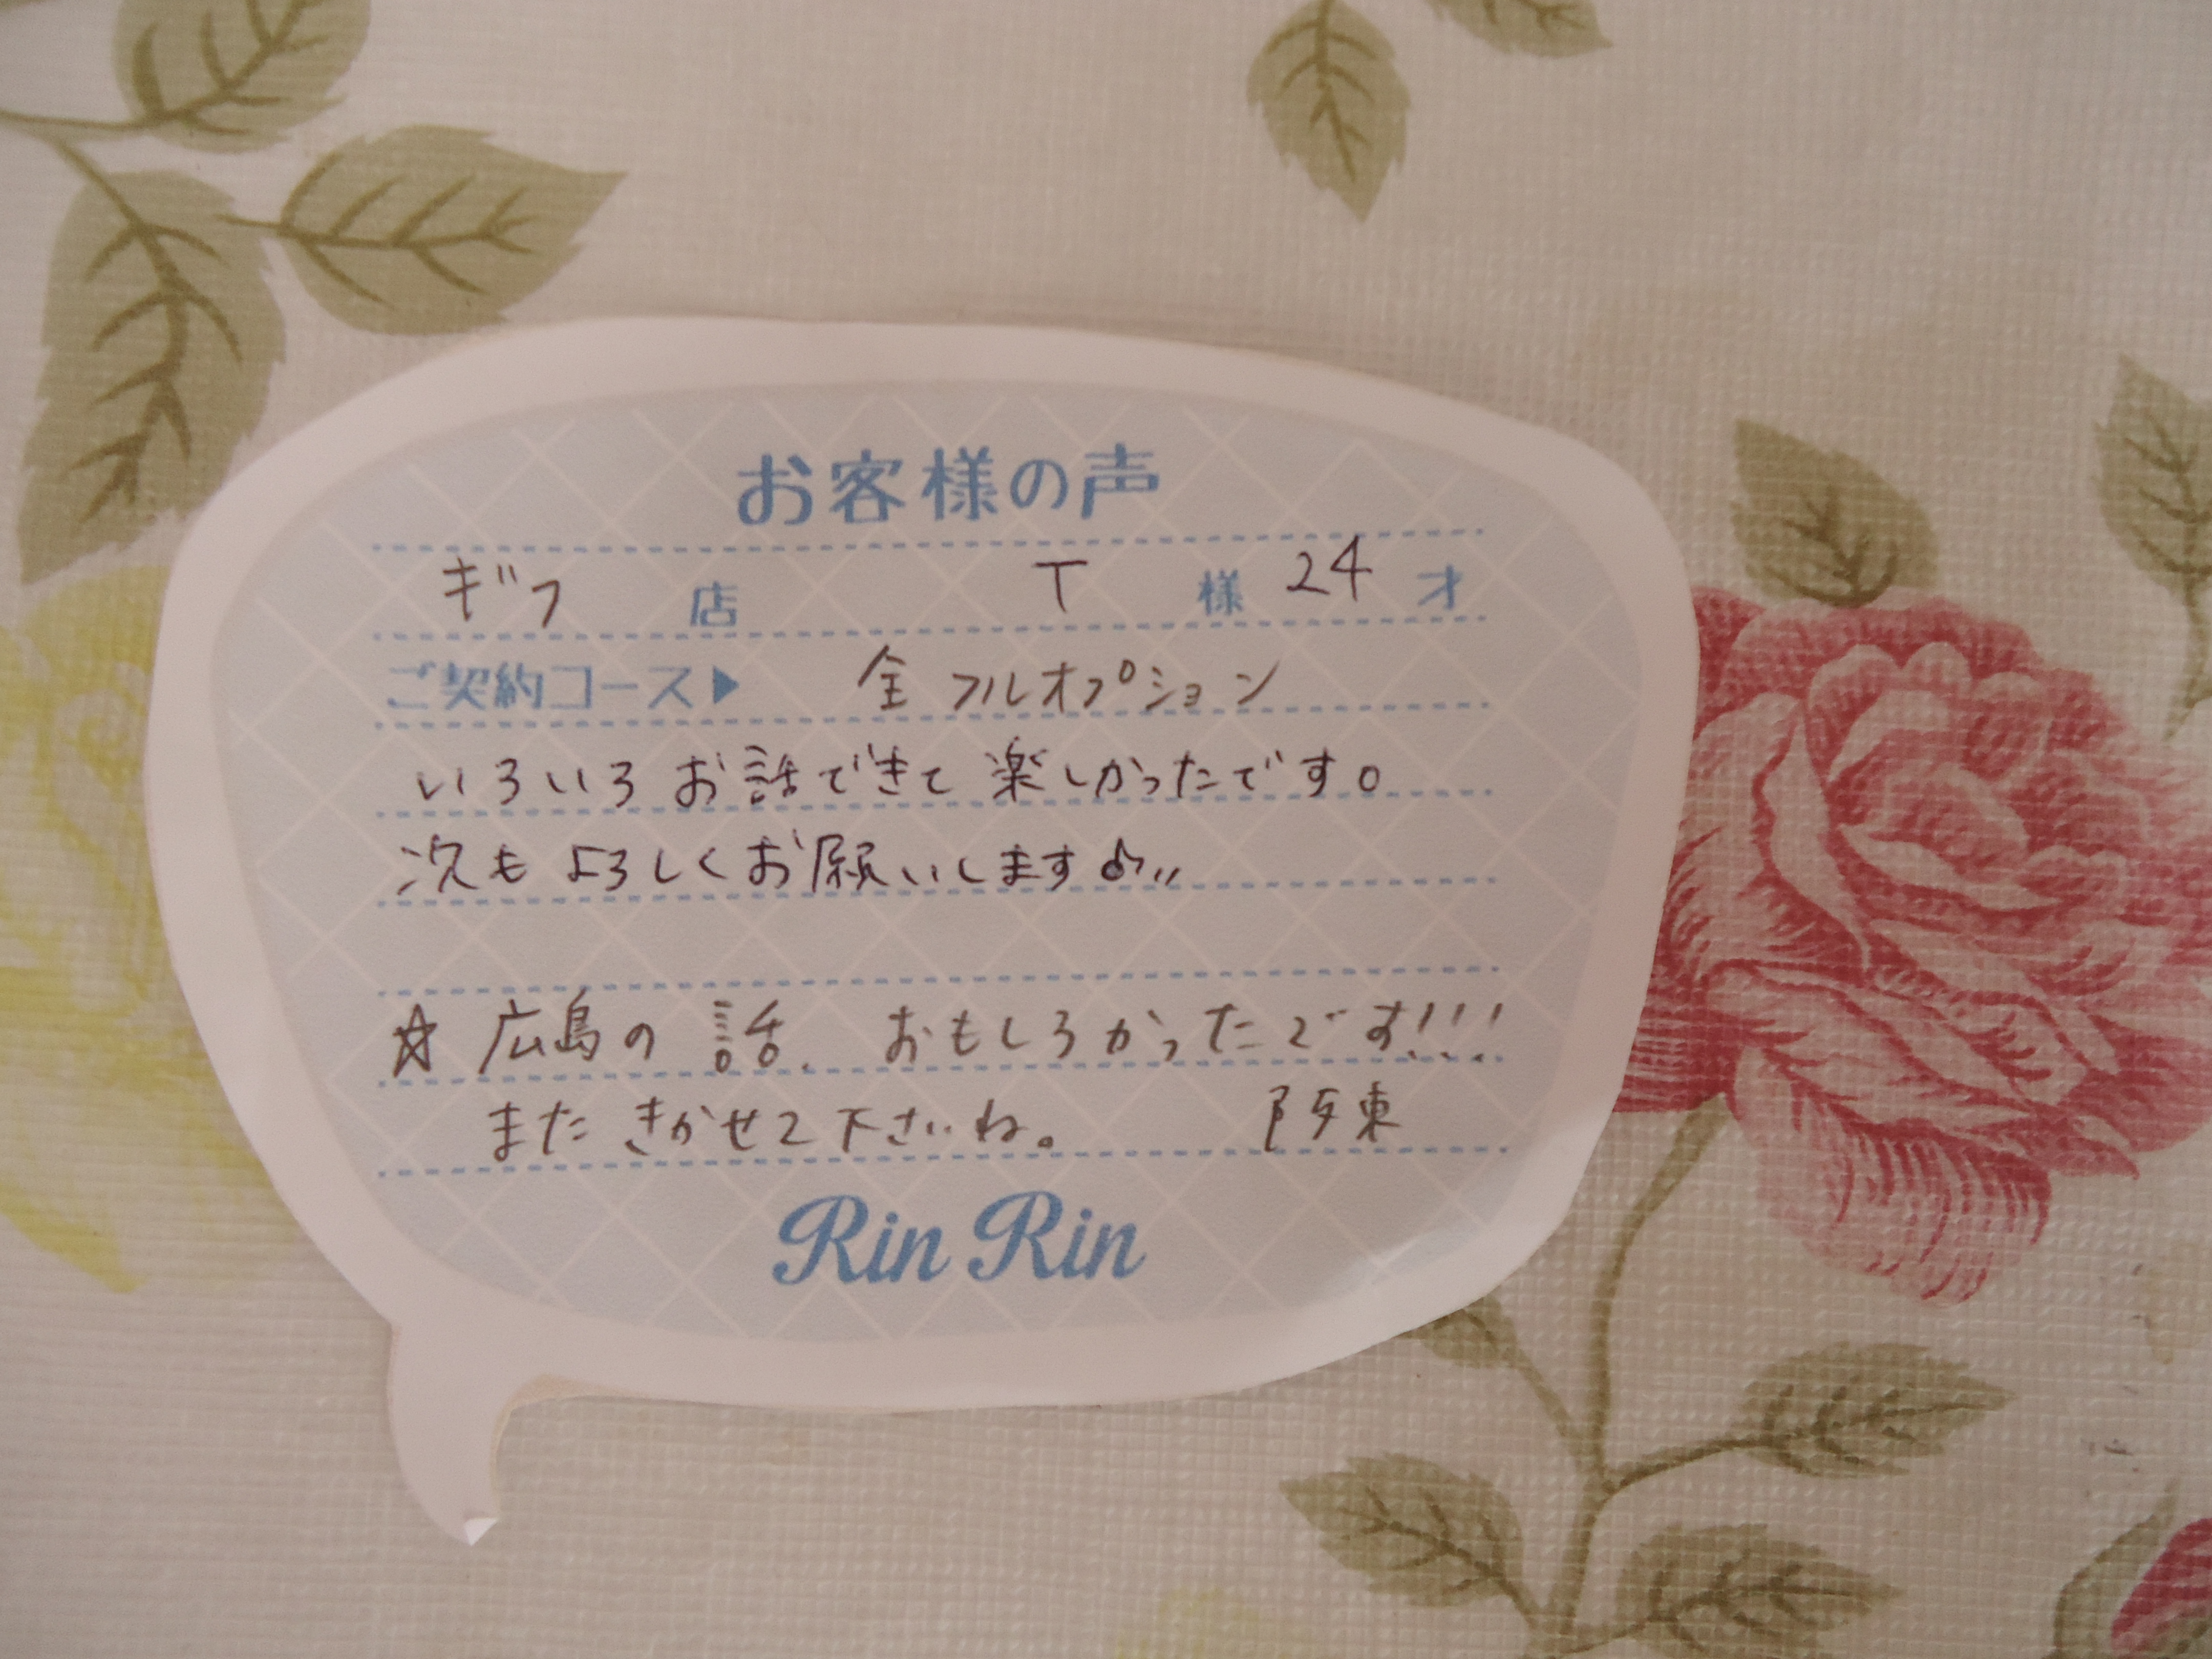 お客様の声
ギフ 店 T 様 24 才
ご契約コース▶ 全 フルオプション
いろいろお話できて楽しかったです。
次もよろしくお願いします♪〃
☆ 広島の話、おもしろかったです!!!
また きかせて下さいね。 阪東
Rin Rin